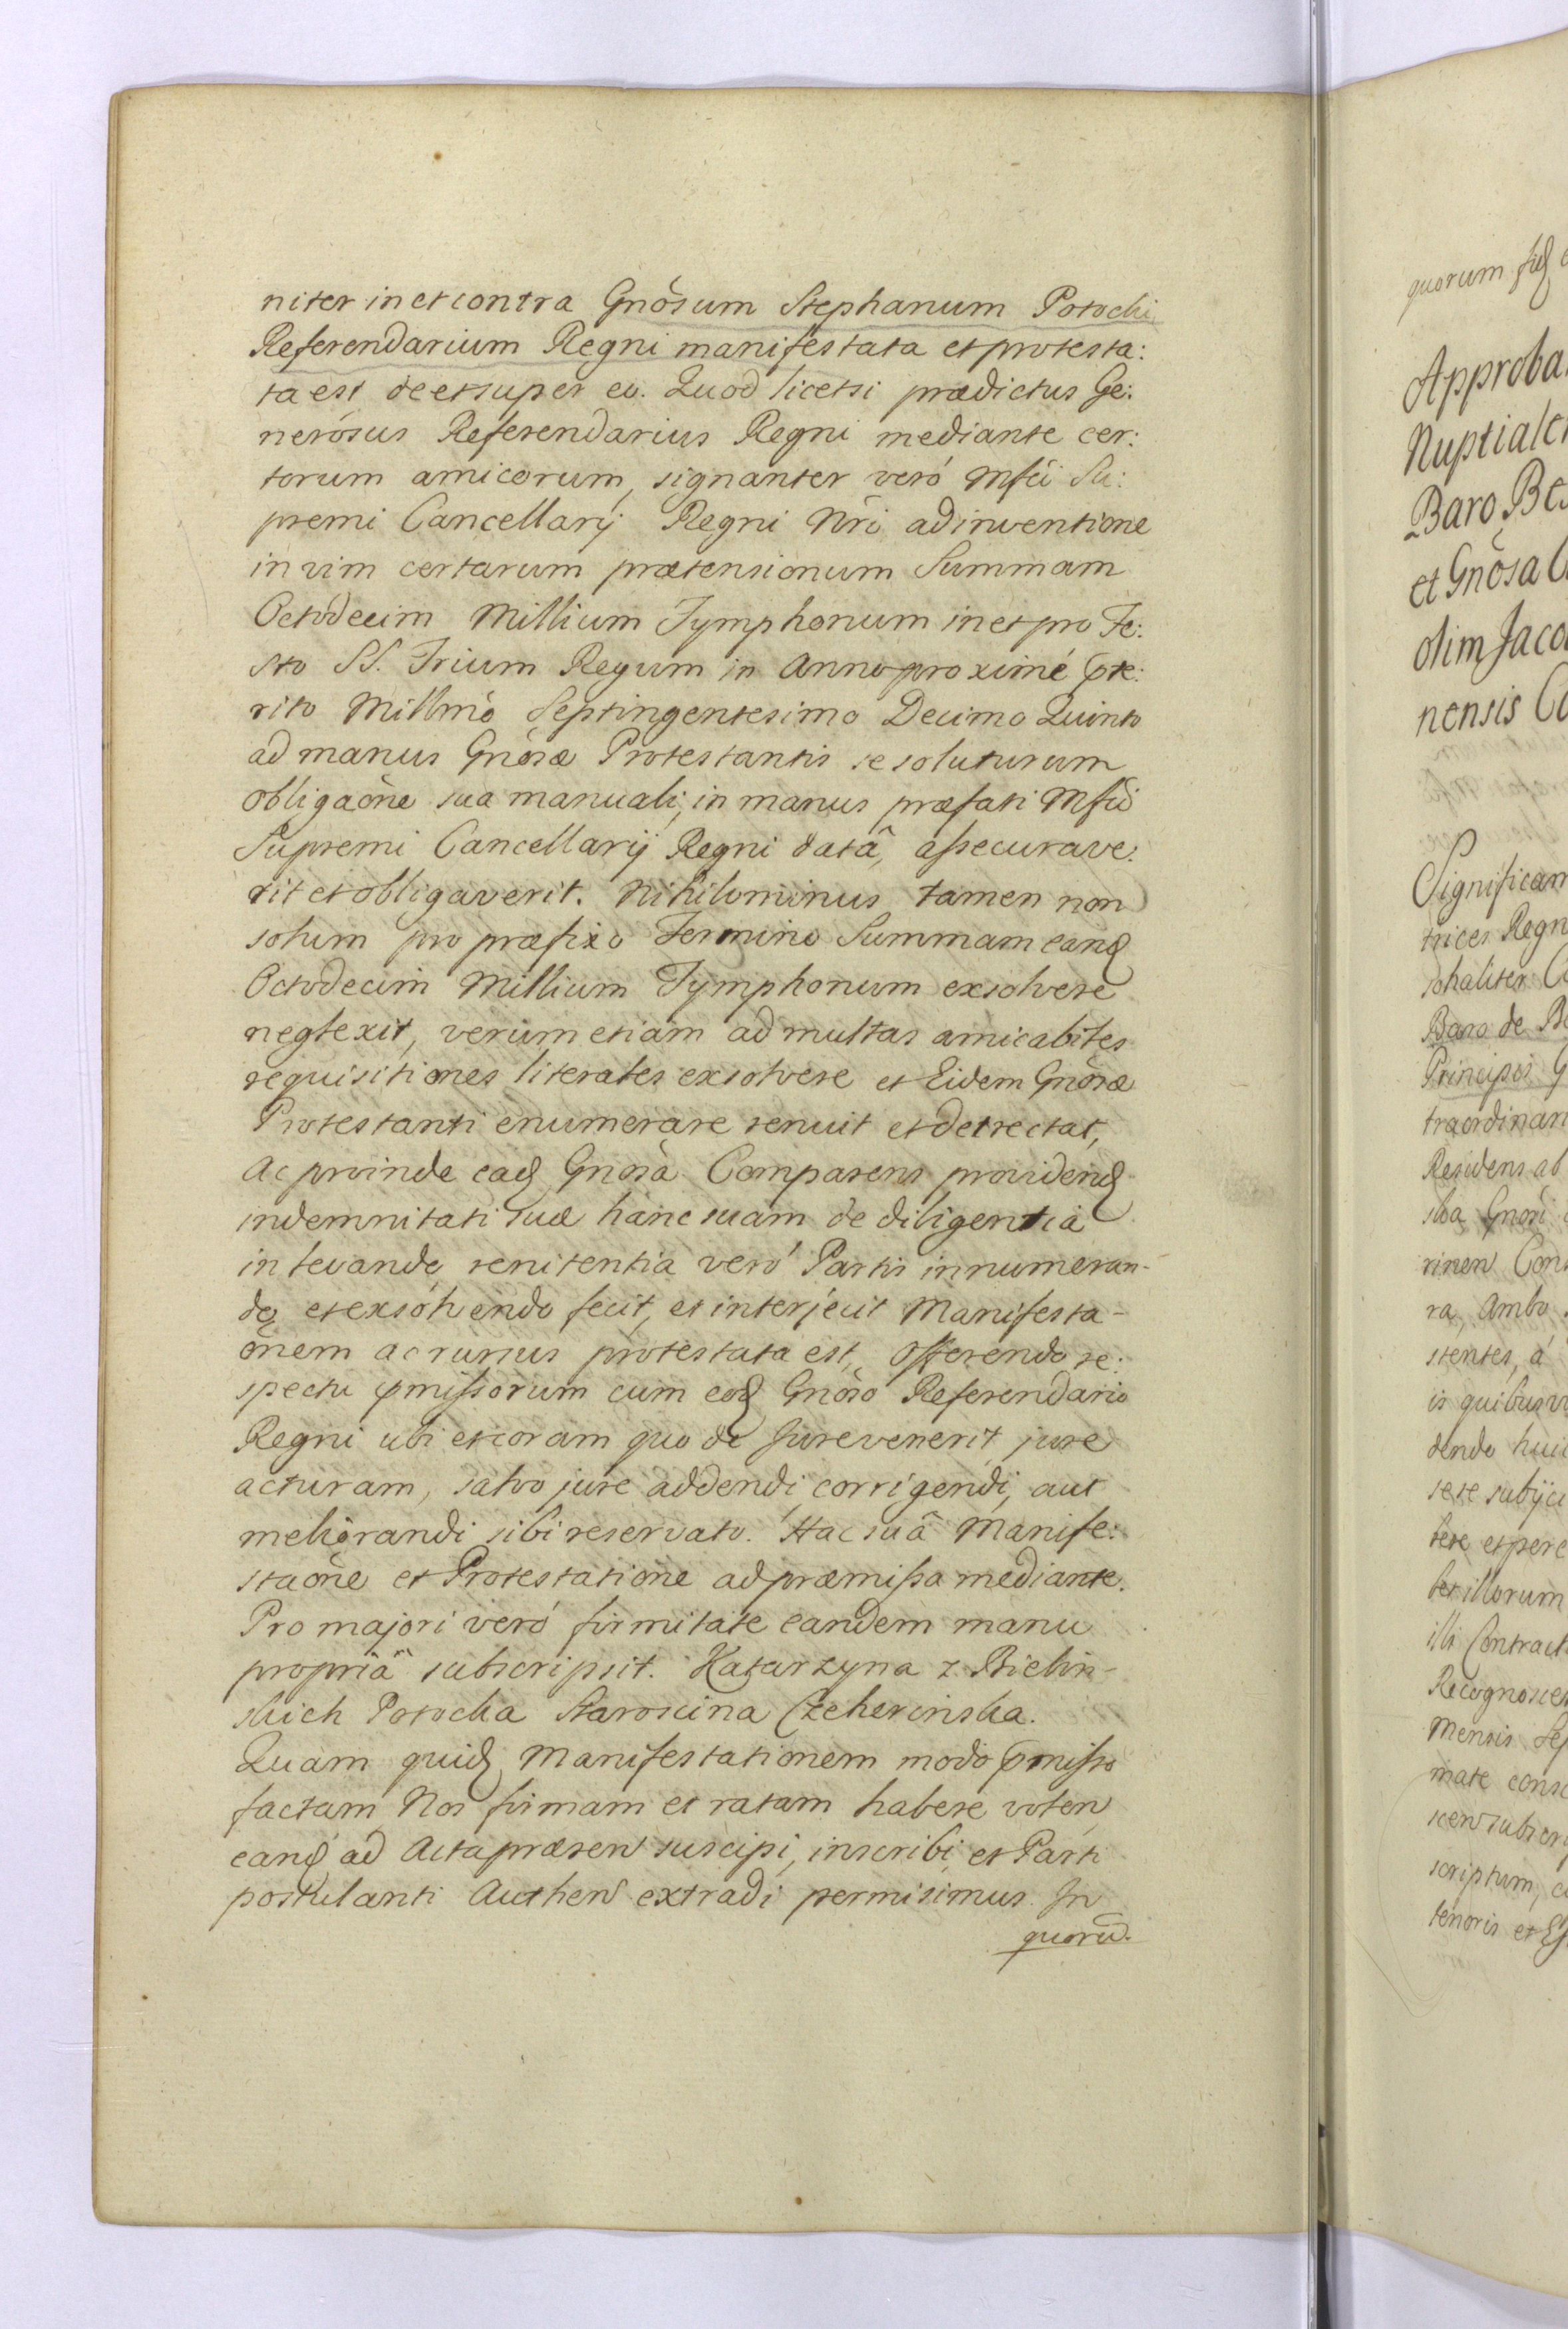 niter in et contra Gnõsum Stephanum Potocki
Referendarium Regni manifestata et protesta:
ta est de et super eo. Quod licetsi prædictus Ge:
nerósus Referendarius Regni mediante cer:
torum amicorum, signanter veró Mfci Su:
premi Cancellarÿ Regni Nr̃i adinventione
in vim certarum prætensionum Summam
Octódecim Millium Tymphonum in et pro Fe:
sto SS. Trium Regum in Anno proximé pte:
rito Millmõ Septingentesimo Decimo Quinto
ad manus Gnõsæ Protestantis se soluturum
obligaõne sua manuali, in manus præfati Mfci
Supremi Cancellarÿ Regni datâ, assecurave:
rit et obligaverit. Nihilominus tamen non
solum pro præfixo Termino Summam eand
Octodecim Millium Tymphonum exsolvere
neglexit, verum etiam ad multas amicabiles
requisitiones literales exsolvere et Eidem Gnõsæ
Protestanti enumerare renuit et detrectat,
Ac proinde ead Gnosa Comparens providend
indemnitati suæ hanc suam de diligentia
in levando renitentia veró Partis in numeran-
do et exsolvendo fecit, et interjecit Manifesta-
õnem ac rursus protestata est, Offerendo re:
spectu pmissorum cum eod Gnõso Referendario
Regni ubi et coram quo de Jure venerit jure
acturam, salvo jure addendi, corrigendi, aut
meliorandi sibi reservato. Hac suâ Manife:
staõne et Protestatione ad præmissa mediante.
Pro majori veró firmitate eandem manu
propriâ subscripsit. Katarzyna z Bielin-
skich Potocka Staroscina Czeherinska.
Quam quid Manifestationem modo pmisso
factam Nos firmam et ratam habere volen
eand ad Acta præsen suscipi, inscribi et Parti
postulanti Authen extradi permisimus. In
quorũ.
quorum fid
Approba
Nuptiale
Baro Bes
et Gnõsa
olim Jaco
nensis Co
Significam
trices Regn
Baro de Be
Principis G
traordinari
Residens ab
ska Gnosi
rinen Con
ra, Ambo
stentes, á
is quibusvi
dendo huic
sese subÿci
bere et per
bet illorum
illi Contract
Recognoscen
Mensis Sep
mate consc
scen subscri
scriptum, c
tenoris et Es